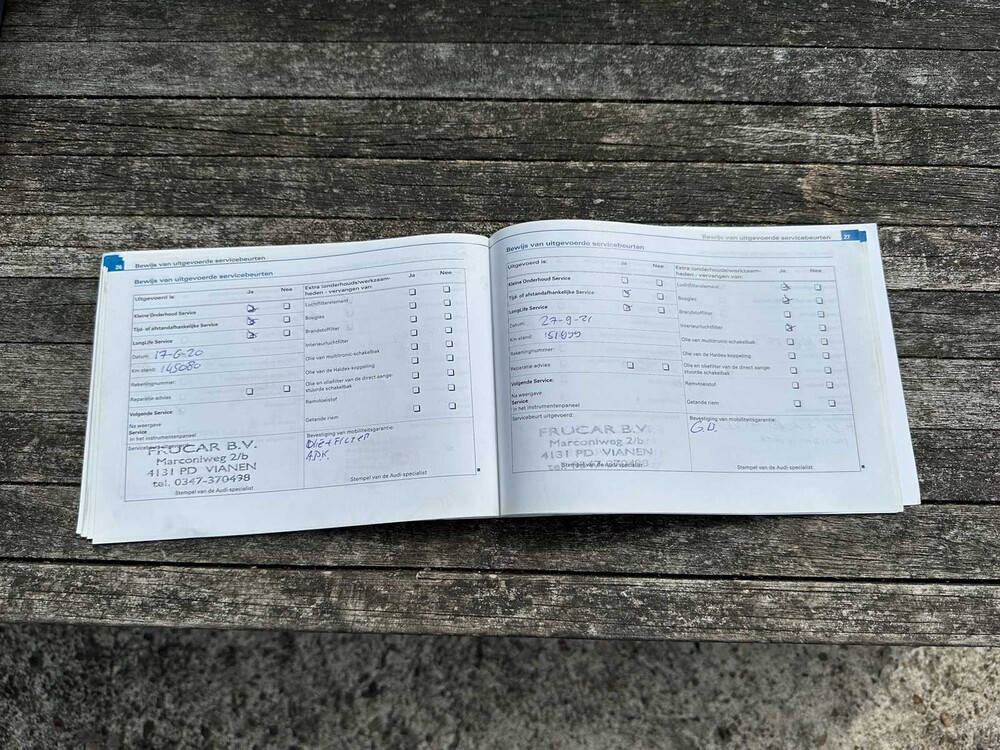 26
Bewijs van uitgevoerde servicebeurten
Bewijs van uitgevoerde servicebeurten
Uitgevoerd is:
Ja
Nee
Kleine Onderhoud Service
Tijd- of afstandafhankelijke Service
LongLife Service
Datum: 17-6-20
Km-stand: 145080
Rekeningnummer:
Reparatie-advies
Volgende Service:
Na weergave
Service
in het instrumentenpaneel
Servicebeurt uitgevoerd:
FRUCAR B.V.
Marconiweg 2/b
4131 PD VIANEN
tel. 0347-370498
Stempel van de Audi-specialist
Extra (onderhouds)werkzaam-
heden - vervangen van:
Ja
Nee
Luchtfilterelement
Bougies
Brandstoffilter
Interieurluchtfilter
Olie van multitronic-schakelbak
Olie van de Haldex-koppeling
Olie en oliefilter van de direct aange-
stuurde schakelbak
Remvloeistof
Getande riem
Bevestiging van mobiliteitsgarantie:
Olie+Filter
APK.
Stempel van de Audi-specialist
Bewijs van uitgevoerde servicebeurten
27
Bewijs van uitgevoerde servicebeurten
Uitgevoerd is:
Ja
Nee
Kleine Onderhoud Service
Tijd- of afstandafhankelijke Service
LongLife Service
Datum: 27-9-21
Km-stand:
Rekeningnummer:
Reparatie-advies
Volgende Service:
Na weergave
Service
in het instrumentenpaneel
Servicebeurt uitgevoerd:
FRUCAR B.V.
Marconiweg 2/b
4131 PD VIANEN
tel. 0347-370498
Stempel van de Audi-specialist
Extra (onderhouds)werkzaam-
heden - vervangen van:
Ja
Nee
Luchtfilterelement
Bougies
Brandstoffilter
Interieurluchtfilter
Olie van multitronic-schakelbak
Olie van de Haldex-koppeling
Olie en oliefilter van de direct aange-
stuurde schakelbak
Remvloeistof
Getande riem
Bevestiging van mobiliteitsgarantie:
G.B.
Stempel van de Audi-specialist